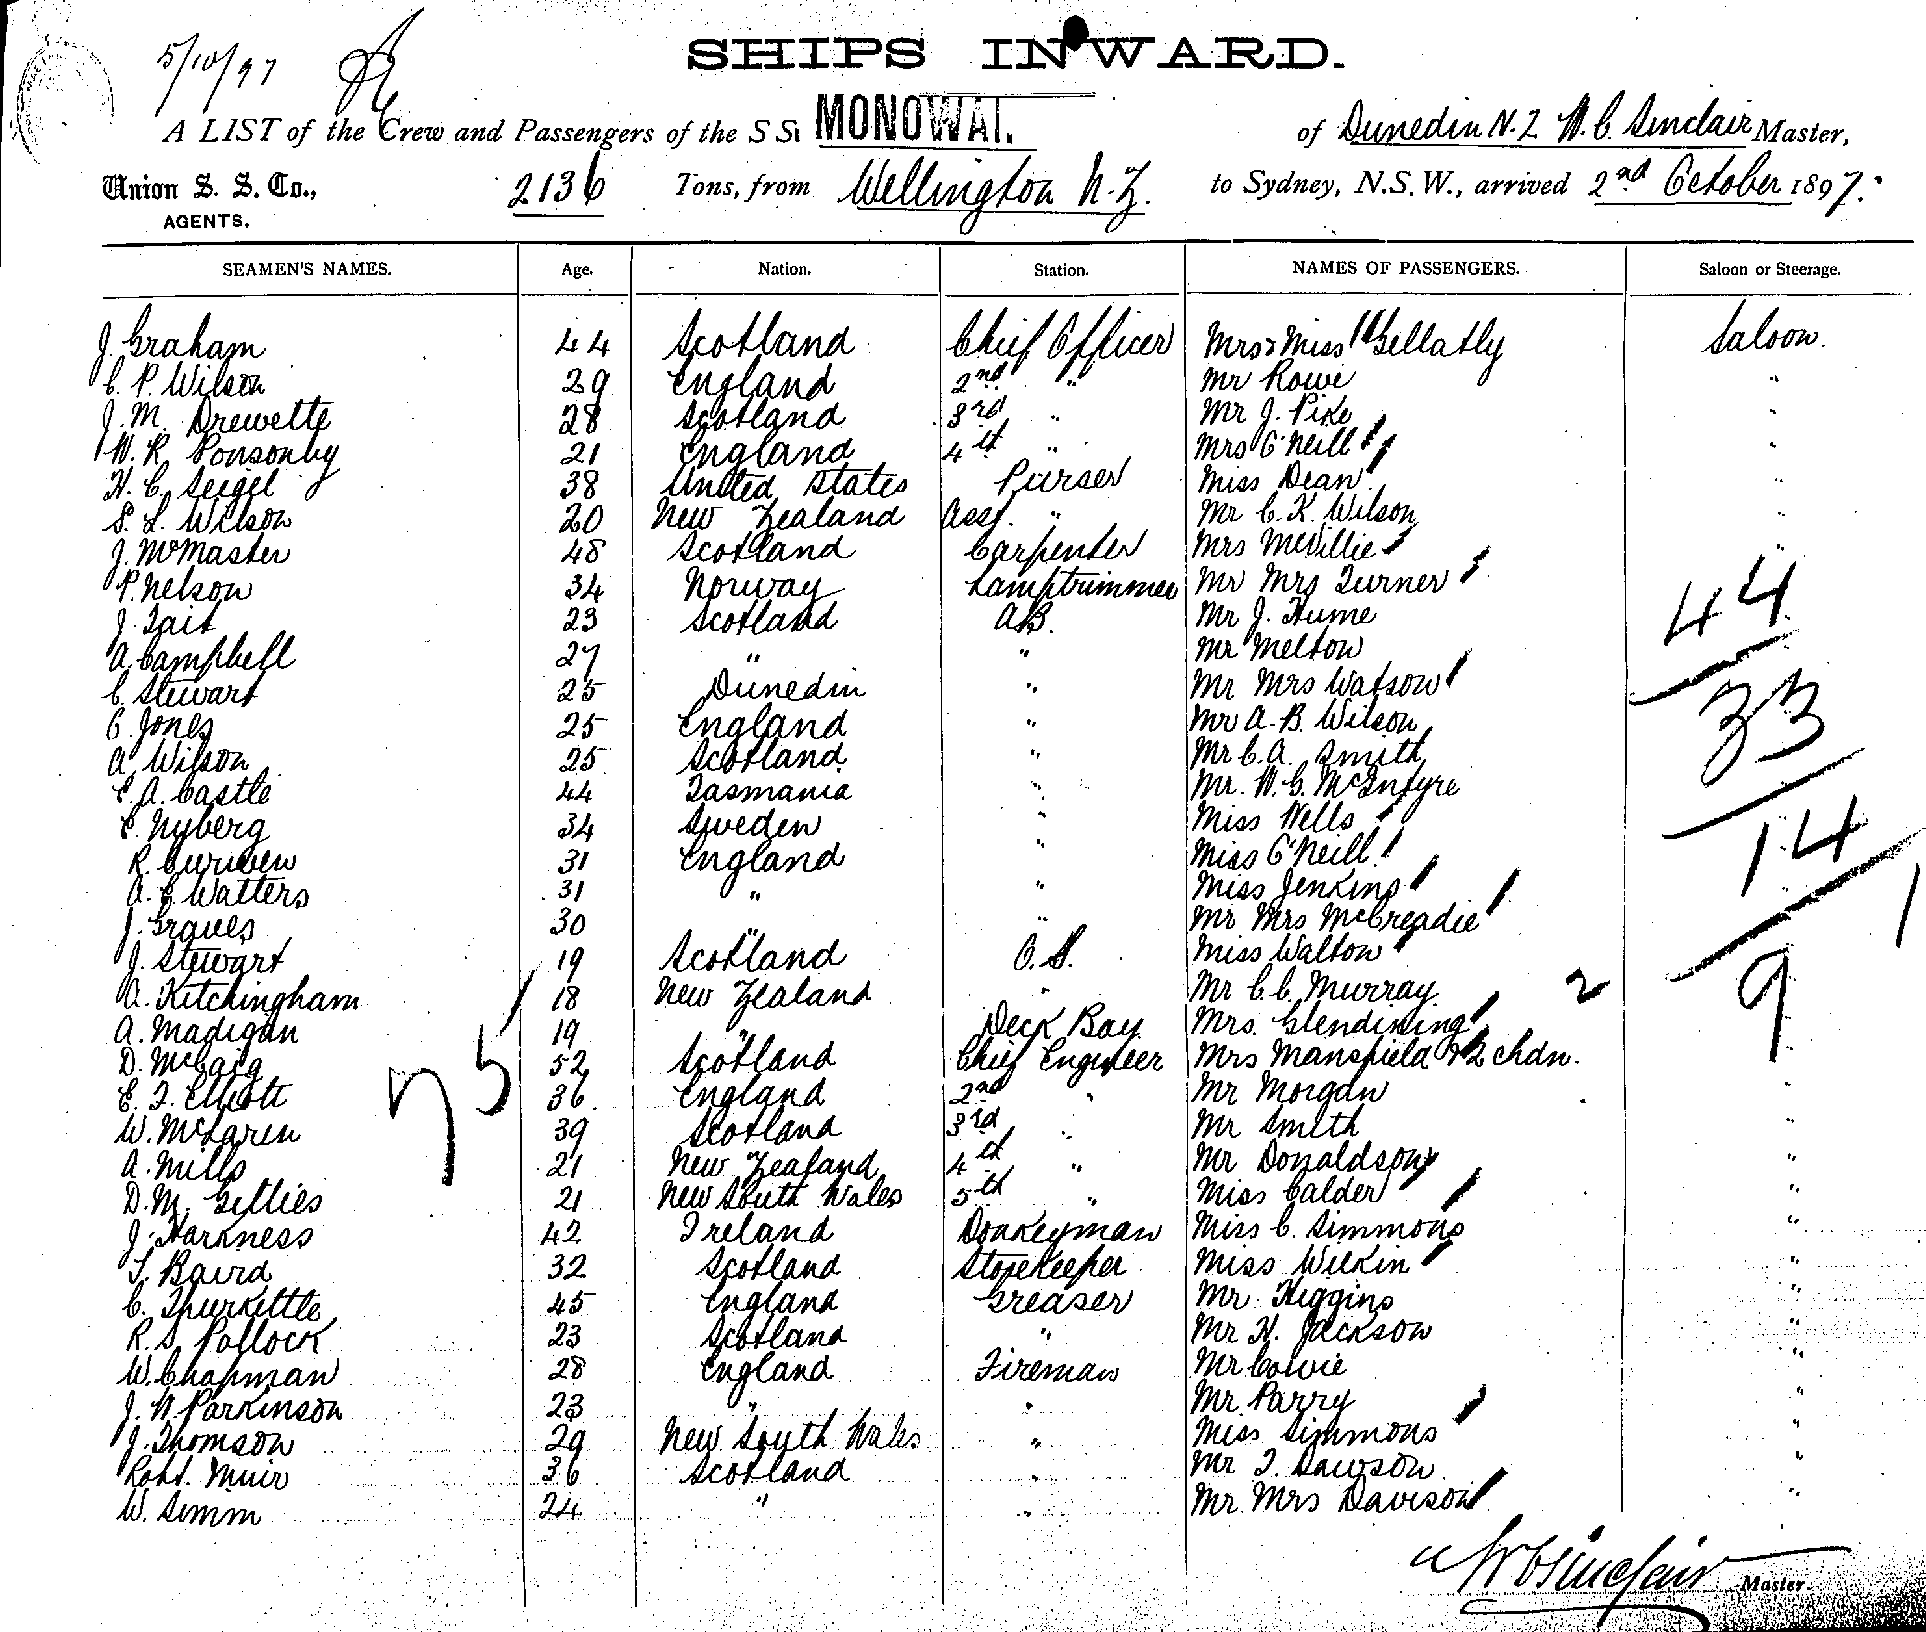 5/10/97
SHIPS INWARD.
A LIST of the Crew and Passengers of the SS. MONOWAI. of Dunedin N.Z W.C. Sinclair Master,
Union S. S. Co., 2136 Tons, from Wellington N.Z. to Sydney, N.S.W., arrived 2nd October 1897.
AGENTS.
SEAMEN'S NAMES. Age. Nation. Station. NAMES OF PASSENGERS. Saloon or Steerage.
J. Graham 44 Scotland Chief Officer Mrs & Miss Gellatly Saloon.
C. P. Wilson 29 England 2nd " Mr Rowe "
J. M. Drewette 28 Scotland 3rd " Mr J. Pike "
W. R. Ponsonby 21 England 4th " Mrs O'Neill "
H. C. Seigel 38 United States Purser Miss Dean "
S. L. Wilson 20 New Zealand Asst. " Mr C. K. Wilson "
J. McMaster 48 Scotland Carpenter Mrs McVillie "
P. Nelson 34 Norway Lamptrimmer Mr Mrs Turner
J. Tait 23 Scotland A.B. Mr J. Hume 44
A. Campbell 27 " " Mr Melton
C. Stewart 25 Dunedin " Mr Mrs Watson
C. Jones 25 England " Mr A. B. Wilson 33
A. Wilson 25 Scotland " Mr C. A. Smith
E. A. Castle 44 Tasmania " Mr. W. G. McIntyre
E. Nyberg 34 Sweden " Miss Wells
R. Curwen 31 England " Miss O'Neill 14
A. E. Watters 31 " " Miss Jenkins
J. Graves 30 " " Mr Mrs McCreadie 1
J. Stewart 19 Scotland O.S. Miss Walton
A. Kitchingham 18 New Zealand " Mr C. C. Murray 2 9
A. Madigan 19 " Deck Boy Mrs. Glendining
D. McCaig 52 Scotland Chief Engineer Mrs Mansfield & 2 chdn.
75
E. T. Elliott 36 England 2nd " Mr Morgan "
W. McLaren 39 Scotland 3rd " Mr Smith "
A. Mills 21 New Zealand 4th " Mr Donaldson "
D. M. Gillies 21 New South Wales 5th " Miss Calder "
J. Harkness 42 Ireland Donkeyman Miss C. Simmons "
T. Baird 32 Scotland Storekeeper Miss Wilkin "
C. Thurkettle 45 England Greaser Mr Higgins "
R. S. Pollock 23 Scotland " Mr H. Jackson "
W. Chapman 28 England Fireman Mr Cowie "
J. W. Parkinson 23 " " Mr. Parry "
J. Thomson 29 New South Wales " Miss Simmons "
Robt. Muir 36 Scotland " Mr T. Dawson "
W. Simm 24 " " Mr Mrs Davison "
W C Sinclair Master.